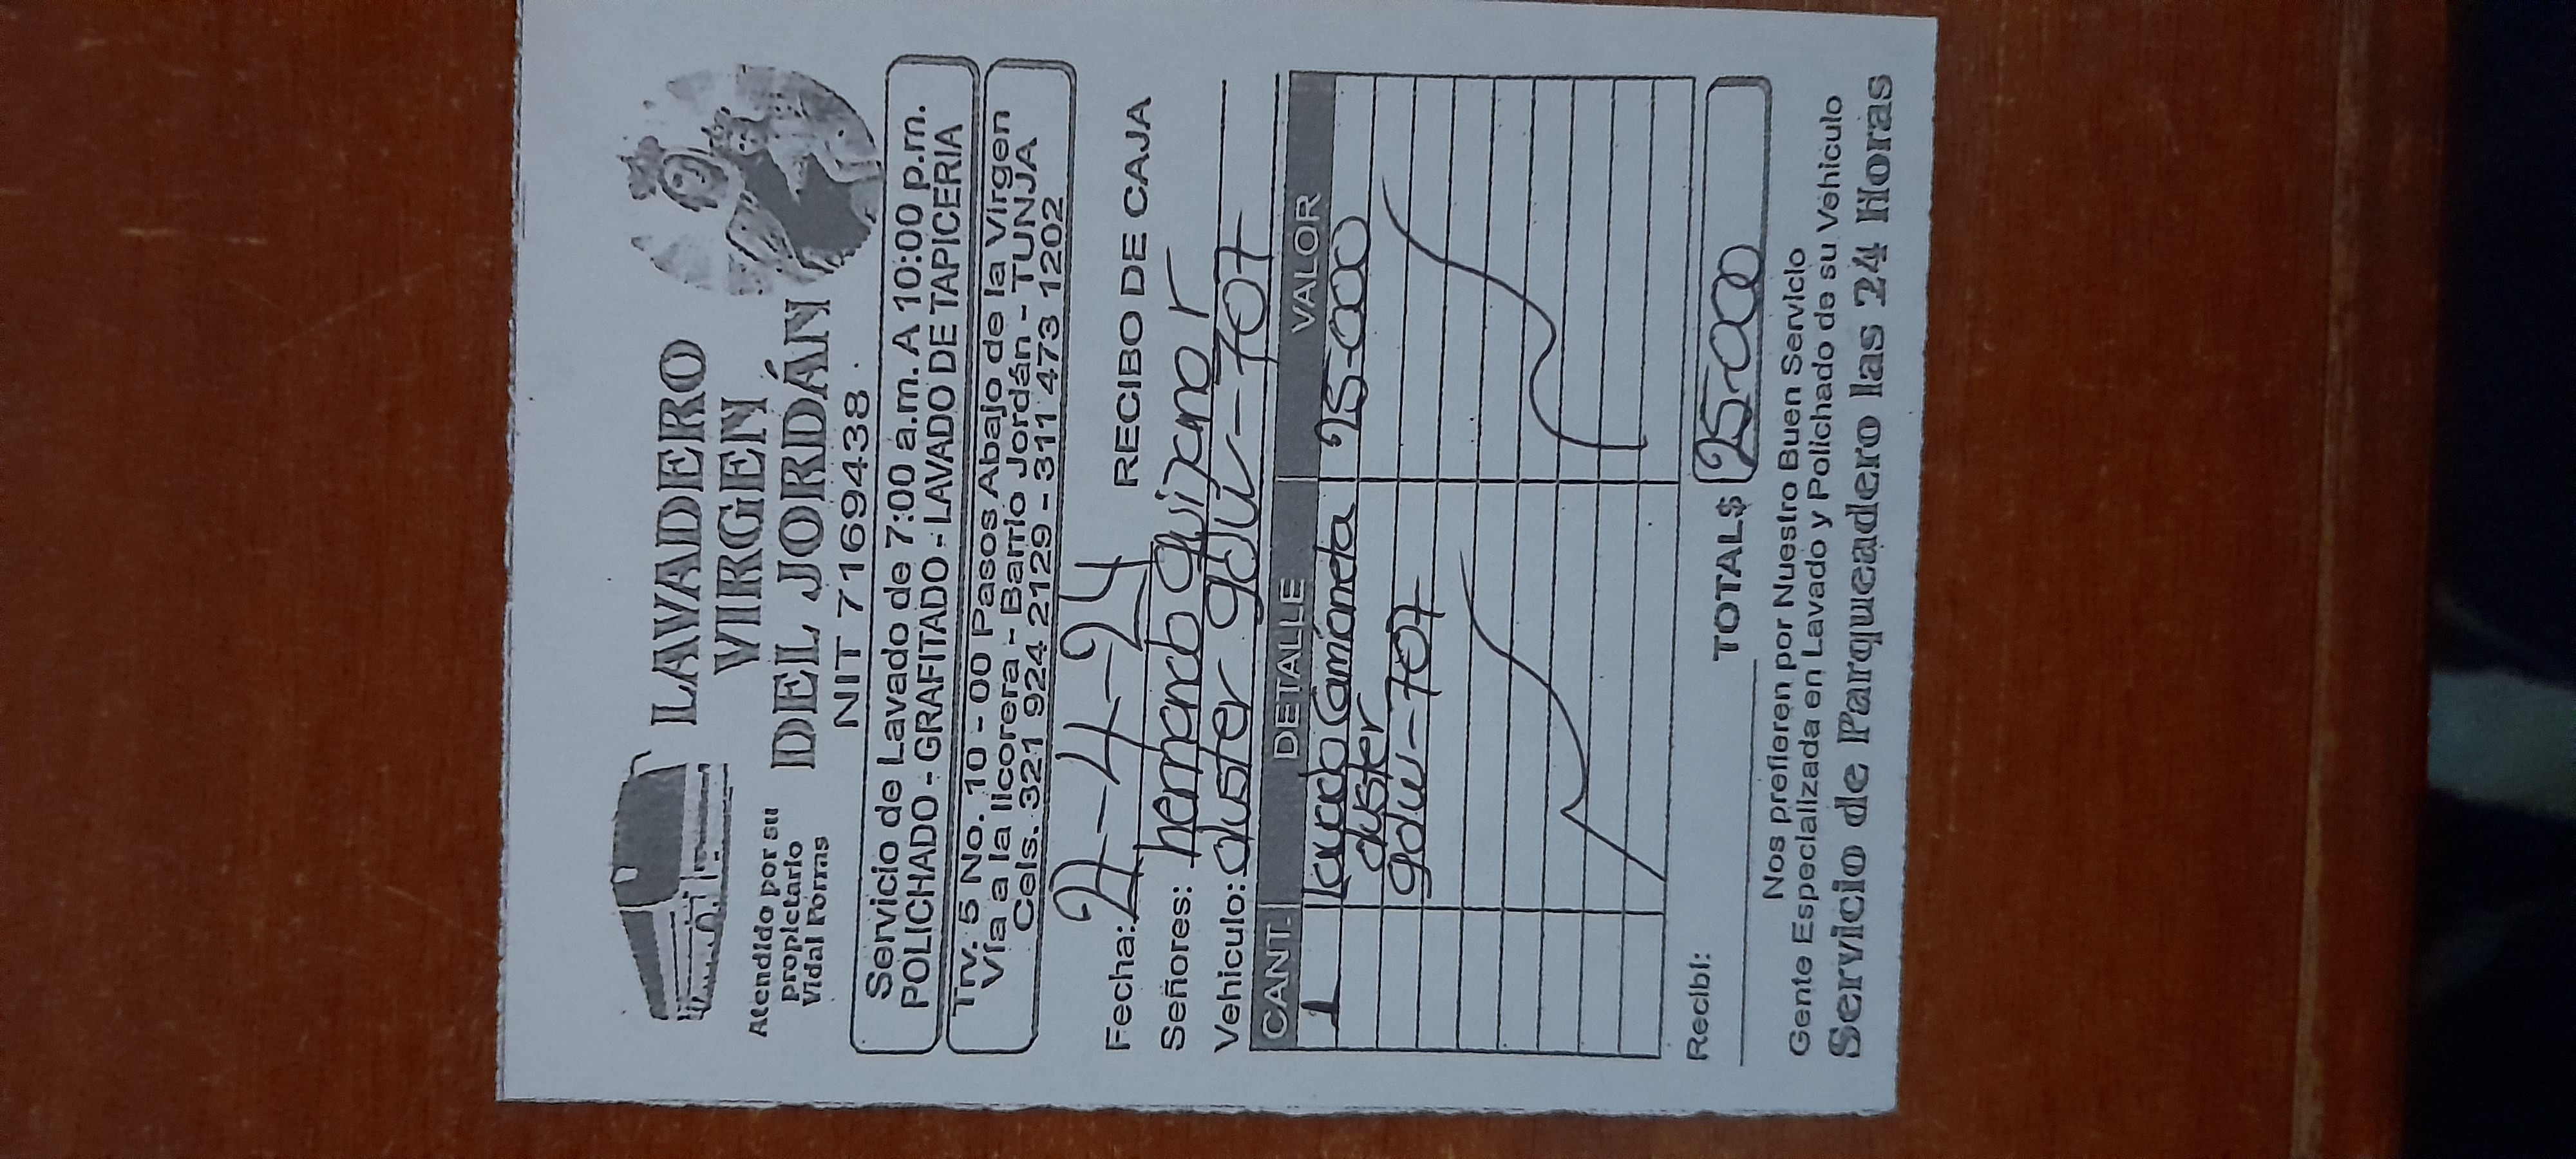 LAVADERO
VIRGEN
DEL JORDÁN
Atendido por su
propietario
Vidal Porras
NIT 7169438
Servicio de Lavado de 7:00 a.m. A 10:00 p.m.
POLICHADO - GRAFITADO - LAVADO DE TAPICERIA
Trv. 5 No. 10 - 00 Pasos Abajo de la Virgen
Vía a la licorera - Barrio Jordán - TUNJA
Cels. 321 924 2129 - 311 473 1202
Fecha: 2-4-24 RECIBO DE CAJA
Señores: hernando quijano
Vehiculo: duster gdu-707
CANT. DETALLE VALOR
1 lavado Camioneta 25-000
duster
gdu-707
TOTAL$ 25-000
Recibí:
Nos prefieren por Nuestro Buen Servicio
Gente Especializada en Lavado y Polichado de su Vehiculo
Servicio de Parqueadero las 24 Horas